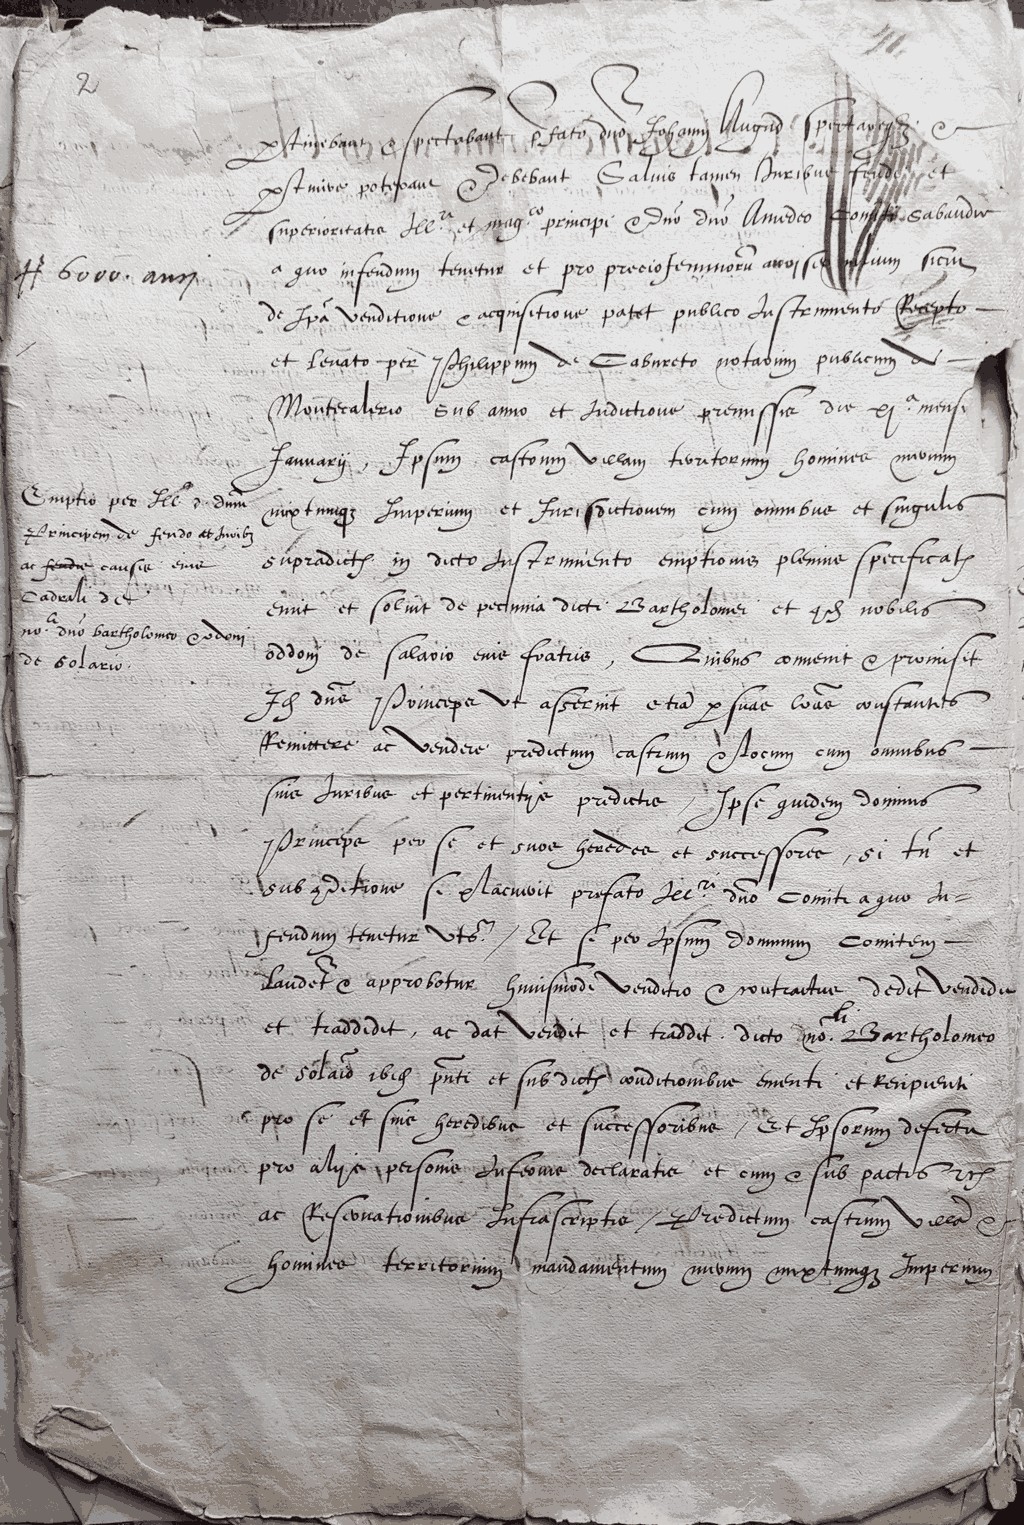 2
pertinebant et spectabant p̄fato dn̄o Johanni
pertinere poterant et debebant Salvis tamen Juribus feudi et
superioritatis Ill.ri et mag.co principi et dn̄o dn̄o Amedeo Comiti Sabaudie
# 6000. auri
a quo in feudum tenetur et pro precio florenorum auri sex milium sicut
de Ip̄a venditione et acquisitione patet publico Instrumento Recepto
et levato per Philippum de Cabureto notarium publicum de
Montecalerio sub anno et Indictione premissis die xj.a mensis
Januarij, Ipsum castrum villam territorium homines merum
Emptio per Ill. d. dnum
Principem de feudo et Iuribz
ac feudis causis eius
Cadrali de
no.li dn̄o bartholomeo et odoni
de Solario.
mixtumqz Imperium et Jurisdictionem cum omnibus et singulis
supradictis in dicto Instrumento emptionis plenius specificatis
emit et solvit de pecunia dicti Bartholomei et nobilis
oddoni de salario eius fratris, Quibus convenit et promisit
dn̄s Princeps ut asserunt etiā p suas lr̄as constantes
Remittere ac vendere predictum castrum et locum cum omnibus
suis Juribus et pertinentijs predictis / Ipse quidem dominus
Princeps pro se et suos heredes et successores, si tn̄ et
sub conditione si placuerit prefato Ill.ri dn̄o Comiti a quo In=
feudum tenetur uts.a / Et si per Ipsum dominum Comitem
laudetr et approbetur huiusmodi venditio et contractus dedit vendidit
et traddidit, ac dat vendit et traddit. dicto no.li Bartholomeo
de solaro ibid. p̄nti et sub dictis conditionibus ementi et Recipienti
pro se et suis heredibus et successoribus / Et Ipsorum defectu
pro alijs personis Inferius declaratis et cum et sub pactis
ac Reservationibus Infrascriptis / Predictum castrum villā et
homines territorium mandamentum merum mixtumqz Imperium